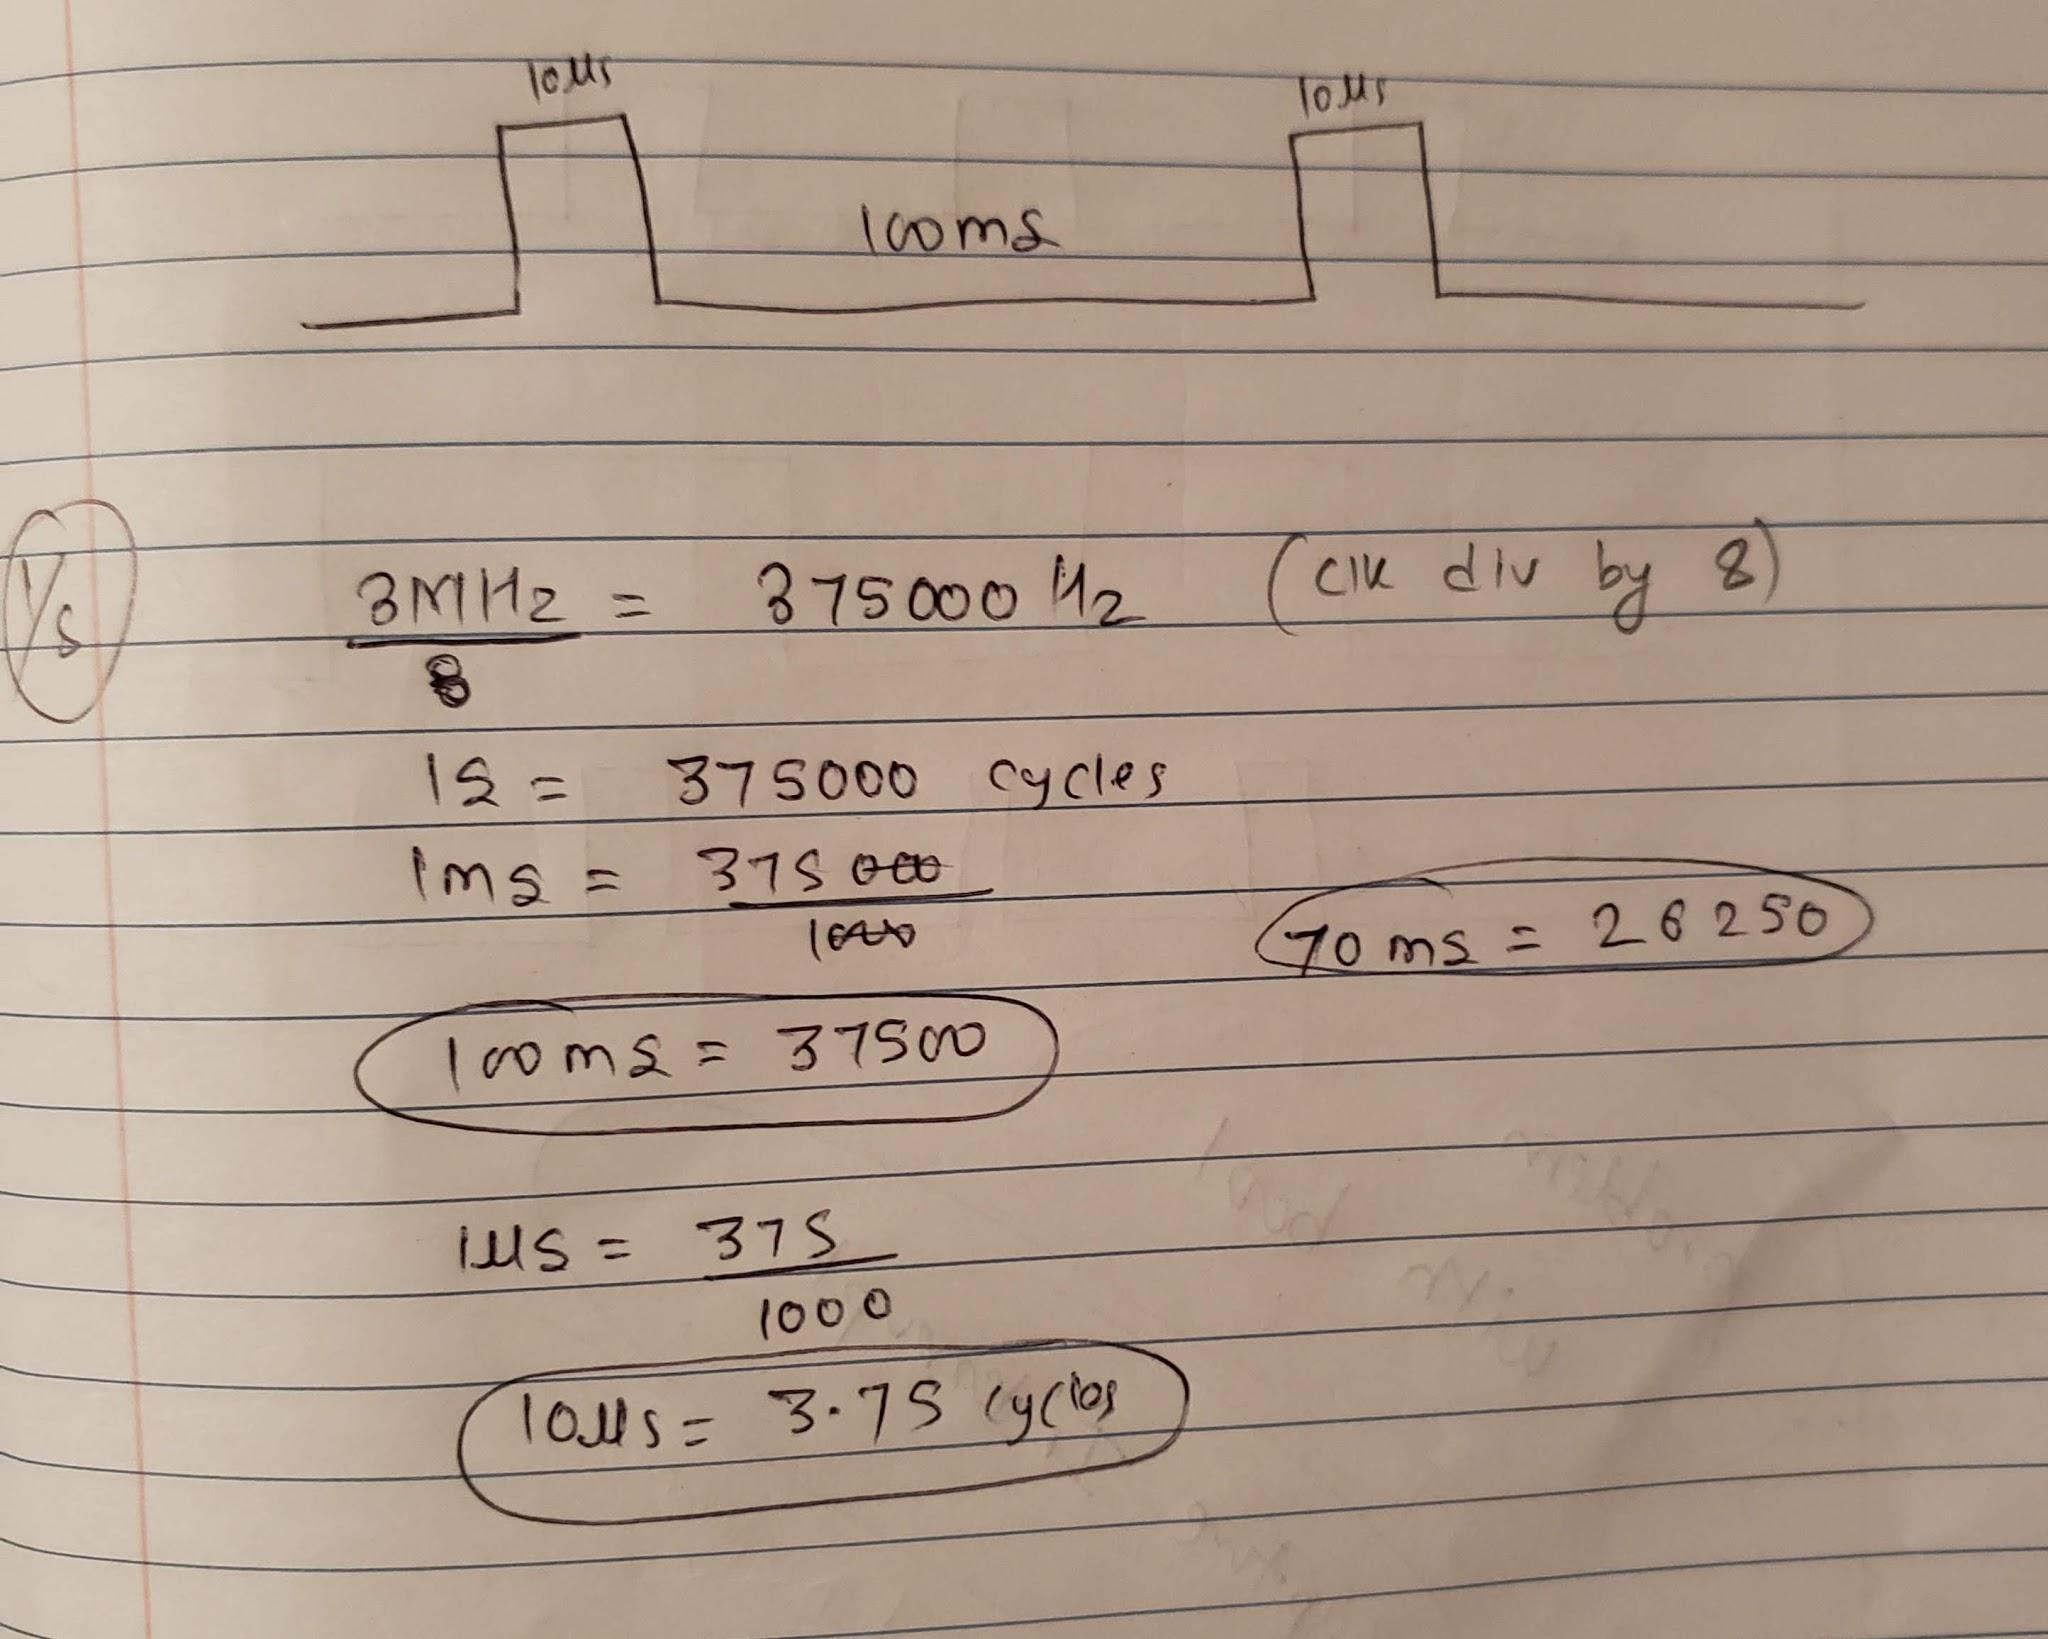 10µs 10µs
100ms
1/s
3MHz = 375000 Hz (clk div by 8)
8
1s = 375000 cycles
1ms = 375000
1000
70ms = 26250
100ms = 37500
1µs = 375
1000
10µs = 3.75 cycles